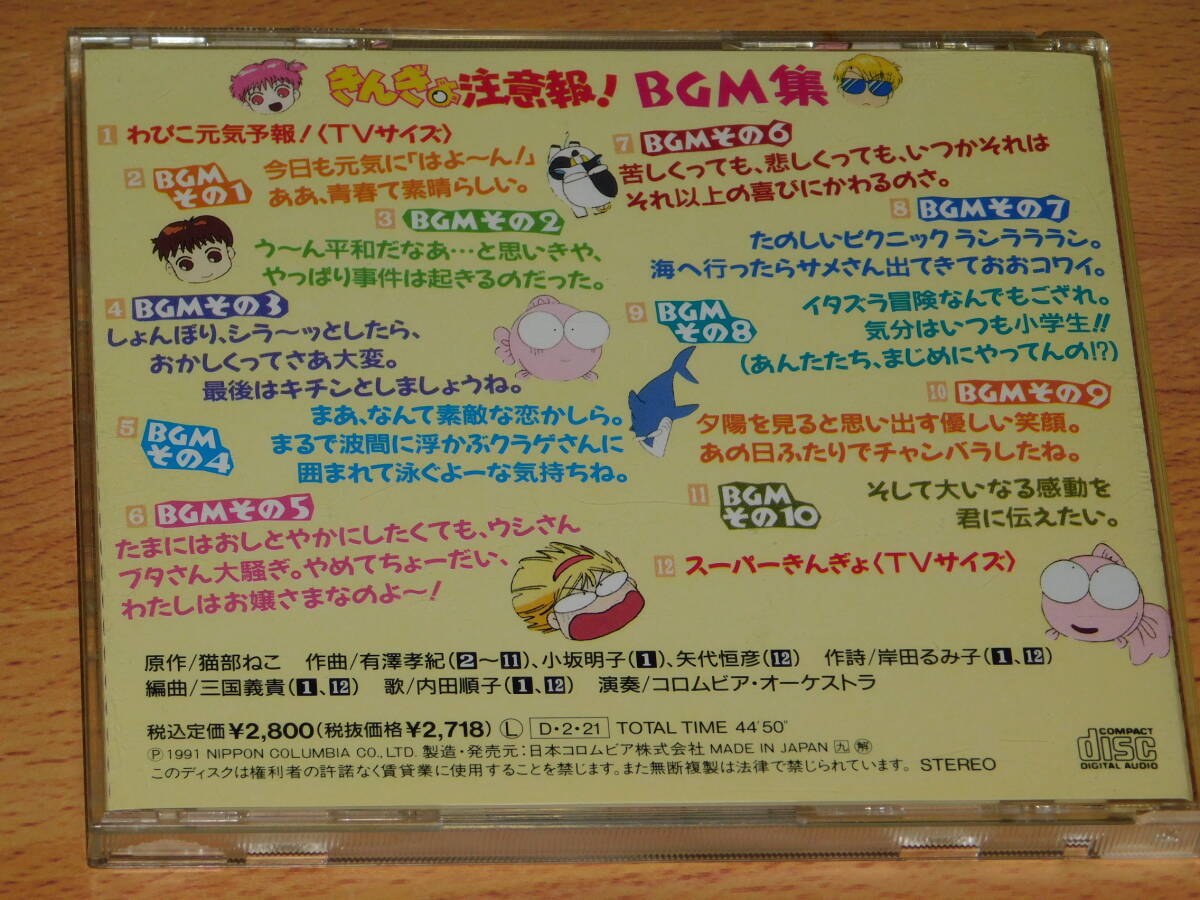 きんぎょ注意報! BGM集
1 わぴこ元気予報!〈TVサイズ〉
2 BGM
その1
今日も元気に「はよ〜ん!」
ああ、青春て素晴らしい。
3 BGMその2
う〜ん平和だなあ…と思いきや、
やっぱり事件は起きるのだった。
4 BGMその3
しょんぼり、シラ〜ッとしたら、
おかしくってさあ大変。
最後はキチンとしましょうね。
5 BGM
その4
まあ、なんて素敵な恋かしら。
まるで波間に浮かぶクラゲさんに
囲まれて泳ぐよーな気持ちね。
6 BGMその5
たまにはおしとやかにしたくても、ウシさん
ブタさん大騒ぎ。やめてちょーだい、
わたしはお嬢さまなのよ〜!
7 BGMその6
苦しくっても、悲しくっても、いつかそれは
それ以上の喜びにかわるのさ。
8 BGMその7
たのしいピクニック ランラララン。
海へ行ったらサメさん出てきておおコワイ。
9 BGM
その8
イタズラ冒険なんでもござれ。
気分はいつも小学生!!
(あんたたち、まじめにやってんの!?)
10 BGMその9
夕陽を見ると思い出す優しい笑顔。
あの日ふたりでチャンバラしたね。
11 BGM
その10
そして大いなる感動を
君に伝えたい。
12 スーパーきんぎょ〈TVサイズ〉
原作/猫部ねこ 作曲/有澤孝紀(2〜11)、小坂明子(1)、矢代恒彦(12) 作詩/岸田るみ子(1、12)
編曲/三国義貴(1、12) 歌/内田順子(1、12) 演奏/コロムビア・オーケストラ
税込定価¥2,800(税抜価格¥2,718) Ⓛ D・2・21 TOTAL TIME 44'50"
Ⓟ 1991 NIPPON COLUMBIA CO., LTD. 製造・発売元:日本コロムビア株式会社 MADE IN JAPAN 九 解
このディスクは権利者の許諾なく賃貸業に使用することを禁じます。また無断複製は法律で禁じられています。 STEREO
COMPACT
disc
DIGITAL AUDIO